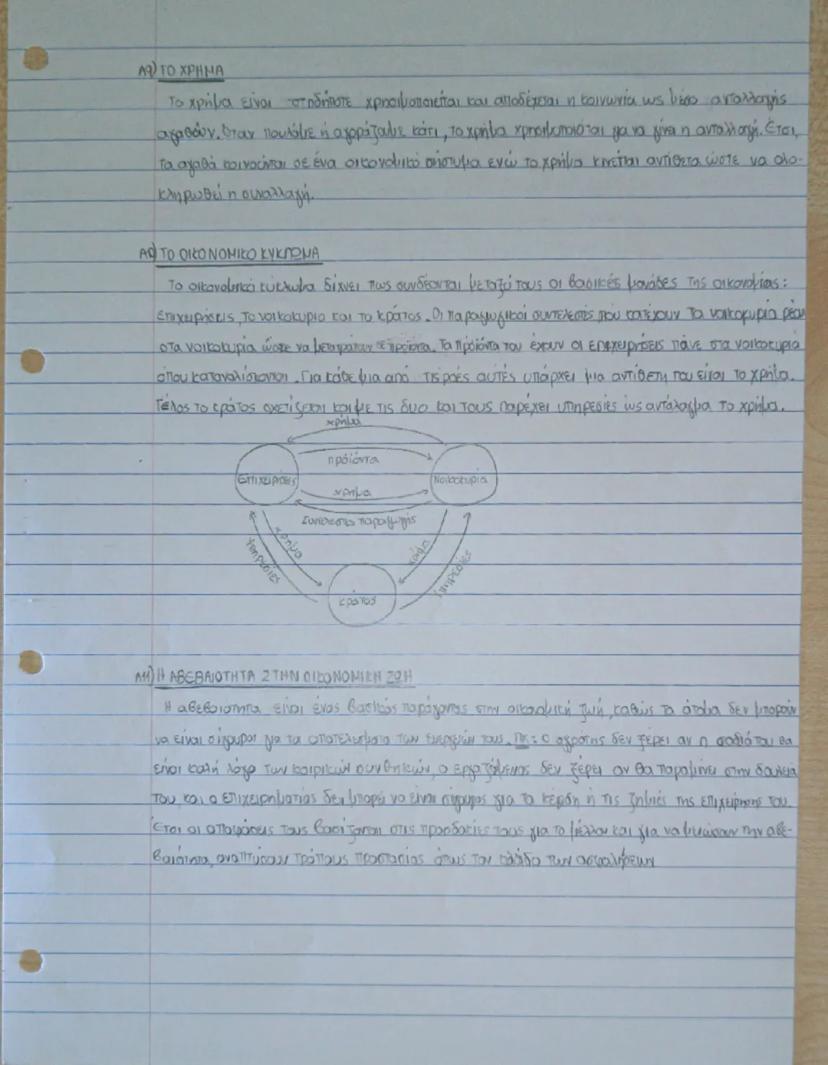 Α9) ΤΟ ΧΡΗΜΑ
Το χρήμα είναι οτιδήποτε χρησιμοποιείται και αποδέχεται η κοινωνία ως μέσο ανταλλαγής
αγαθών. Όταν πουλάμε ή αγοράζουμε κάτι, το χρήμα χρησιμοποιείται για να γίνει η ανταλλαγή. Έτσι,
τα αγαθά κινούνται σε ένα οικονομικό σύστημα ενώ το χρήμα κινείται αντίθετα ώστε να ολο-
κληρωθεί η συναλλαγή.
ΤΟ ΟΙΚΟΝΟΜΙΚΟ ΚΥΚΛΩΜΑ
Το οικονομικό κύκλωμα δίχνει πως συνδέονται μεταξύ τους οι βασικές μονάδες της οικονομίας:
Επιχειρήσεις, το νοικοκυριο και το κράτος. Οι παραγωγικοί συντελεστές που κατέχουν τα νοικοκυριά ρέουν
στα νοικοκυριά ώστε να μετατραπούν σε προϊόντα. Τα προϊόντα που έχουν οι επιχειρήσεις πάνε στα νοικοκυριά
όπου καταναλίσκονται. Για κάθε μια από τις ροές αυτές υπάρχει μια αντίθετη που είναι το χρήμα.
Τέλος το κράτος σχετίζεται και με τις δυο και τους παρέχει υπηρεσίες ως αντάλαγμα το χρήμα.
χρήμα
πρόϊόντα
Επιχειρήσεις
Νοικοκυριά
χρήμα
Συντελεστές παραγωγής
χρήμα
Υπηρεσίες
χρήμα
Υπηρεσίες
κράτος
Α11) Η ΑΒΕΒΑΙΟΤΗΤΑ ΣΤΗΝ ΟΙΚΟΝΟΜΙΚΗ ΖΩΗ
Η αβεβαιότητα είναι ένας βασικός παράγοντας στην οικονομική ζωή, καθώς τα άτομα δεν μπορούν
να είναι σίγουροι για τα αποτελέσματα των ενεργειών τους. Πχ: ο αγρότης δεν ξέρει αν η σοδιά του θα
είναι καλή λόγο των καιρικών συνθηκών, ο εργαζόμενος δεν ξέρει αν θα παραμείνει στην δουλειά
του και ο επιχειρηματίας δεν μπορεί να είναι σίγουρος για τα κέρδη ή τις ζημιές της επιχείρησης του.
Έτσι οι αποφάσεις τους βασίζονται στις προσδοκίες τους για το μέλλον και για να μειώσουν την αβε-
βαιότητα, αναπτύσουν τρόπους προστασίας όπως τον κλάδο των ασφαλήσεων